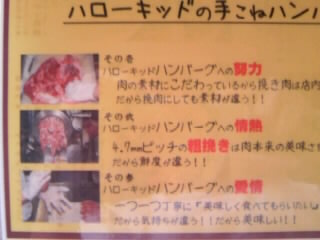 ハローキッドの手こねハン
その壱
ハローキッドハンバーグへの努力
肉の素材にこだわっているから挽き肉は店内
だから挽肉にしても素材が違う!!
その弐
ハローキッドハンバーグへの情熱
4.7mmピッチの粗挽きは肉本来の美味さ
だから鮮度が違う!!
その参
ハローキッドハンバーグへの愛情
一つ一つ丁寧に「美味しく食べてもらいたい」
だから気持ちが違う!!だから美味しい!!